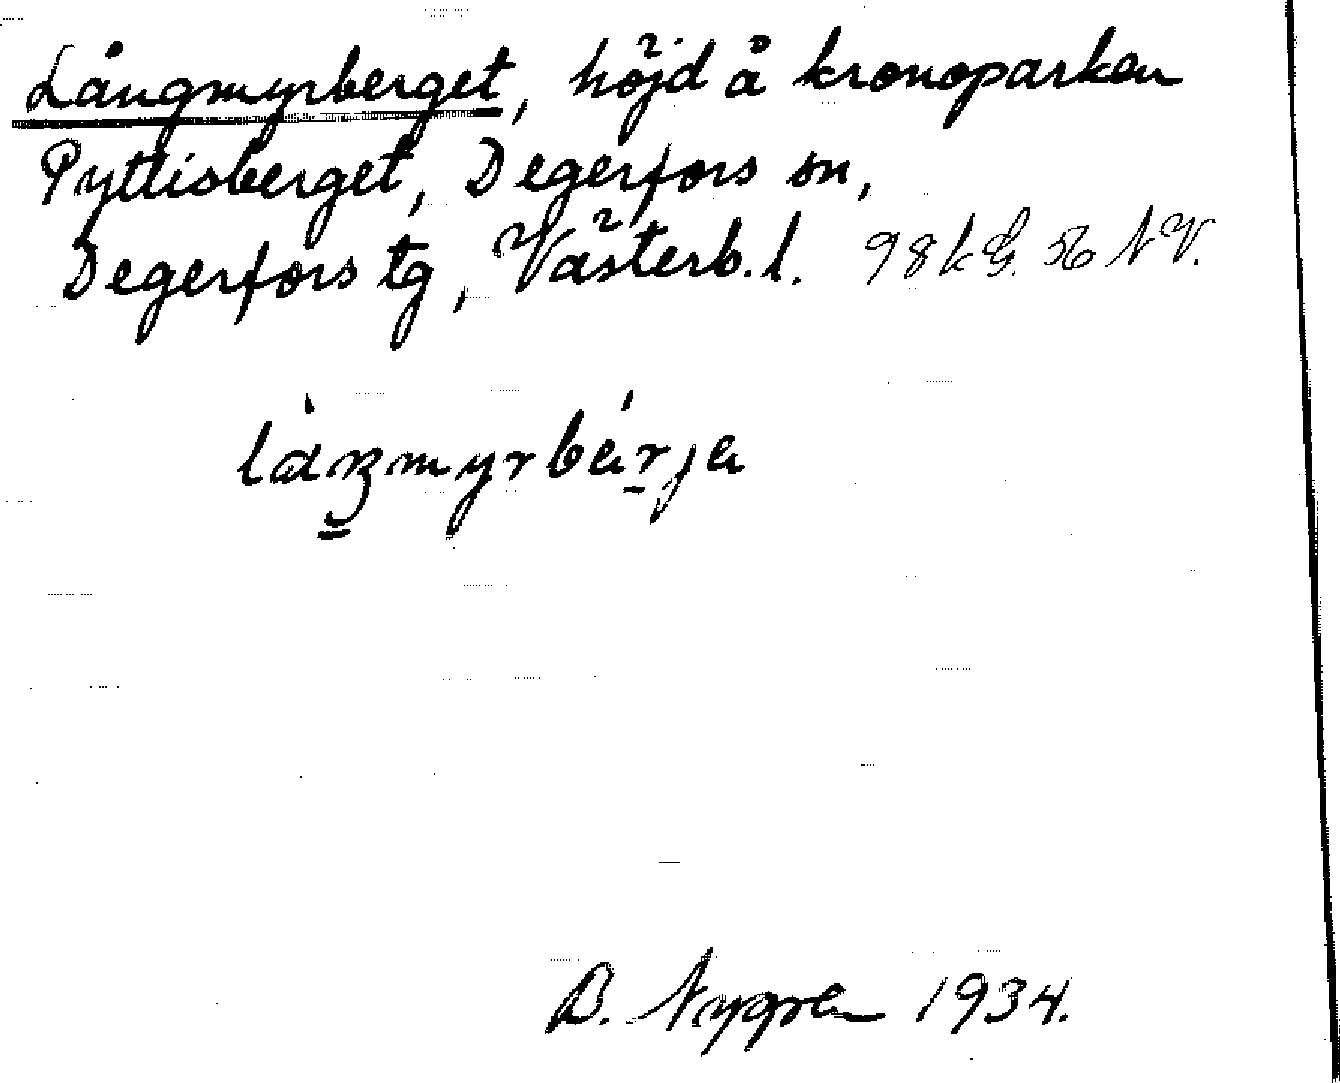 Långmyrberget, höjd å kronoparken
Pyttisberget, Degerfors sn,
Degerfors tg, Västerb. l. 98 k G. 56 NV.
B. Nygren 1934.